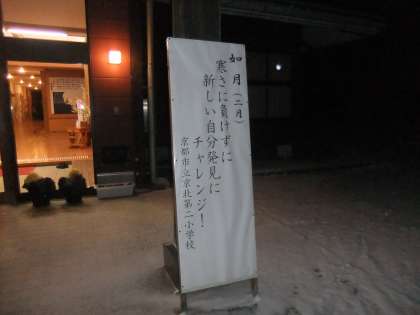 如月(二月)
寒さに負けずに
新しい自分発見に
チャレンジ！
京都市立京北第二小学校